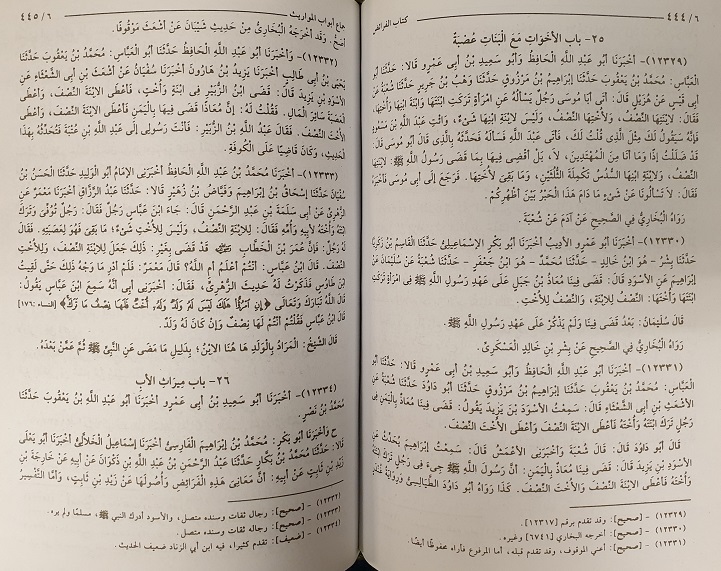 ٤٤٤/٦
كتاب الفرائض
٢٥- باب الأَخَوَاتِ مَعَ الْبَنَاتِ عَصَبَةٌ
(١٢٣٢٩)- أَخْبَرَنَا أَبُو عَبْدِ اللَّهِ الْحَافِظُ وَأَبُو سَعِيدِ بْنُ أَبِى عَمْرٍو قَالَا: حَدَّثَنَا أَبُو
الْعَبَّاسِ: مُحَمَّدُ بْنُ يَعْقُوبَ حَدَّثَنَا إِبْرَاهِيمُ بْنُ مَرْزُوقٍ حَدَّثَنَا وَهْبُ بْنُ جَرِيرٍ حَدَّثَنَا شُعْبَةُ عَنْ
أَبِى قَيْسٍ عَنْ هُزَيْلٍ قَالَ: أَتَى أَبَا مُوسَى رَجُلٌ يَسْأَلُهُ عَنِ امْرَأَةٍ تَرَكَتِ ابْنَتَهَا وَابْنَةَ ابْنِهَا وَأُخْتَهَا،
فَقَالَ: لاِبْنَتِهَا النِّصْفُ، وَلأُخْتِهَا النِّصْفُ، وَلَيْسَ لاِبْنَةِ ابْنِهَا شَىْءٌ، وَائْتِ عَبْدَ اللَّهِ بْنَ مَسْعُودٍ
فَإِنَّهُ سَيَقُولُ لَكَ مِثْلَ الَّذِى قُلْتُ لَكَ، فَأَتَى عَبْدَ اللَّهِ فَسَأَلَهُ فَحَدَّثَهُ بِالَّذِى قَالَ أَبُو مُوسَى قَالَ:
قَدْ ضَلَلْتُ إِذًا وَمَا أَنَا مِنَ الْمُهْتَدِينَ، لَا، بَلْ أَقْضِى فِيهَا بِمَا قَضَى رَسُولُ اللَّهِ ﷺ لاِبْنَتِهَا
النِّصْفُ، وَلاِبْنَةِ ابْنِهَا السُّدُسُ تَكْمِلَةَ الثُّلُثَيْنِ، وَمَا بَقِىَ لأُخْتِهَا. فَرَجَعَ إِلَى أَبِى مُوسَى فَأَخْبَرَهُ
فَقَالَ: لَا تَسْأَلُونَا عَنْ شَىْءٍ مَا دَامَ هَذَا الْحَبْرُ بَيْنَ أَظْهُرِكُمْ.
رَوَاهُ الْبُخَارِىُّ فِى الصَّحِيحِ عَنْ آدَمَ عَنْ شُعْبَةَ.
(١٢٣٣٠)- أَخْبَرَنَا أَبُو عَمْرٍو الأَدِيبُ أَخْبَرَنَا أَبُو بَكْرٍ الإِسْمَاعِيلِىُّ حَدَّثَنَا الْقَاسِمُ بْنُ زَكَرِيَّا
حَدَّثَنَا بِشْرٌ - هُوَ ابْنُ خَالِدٍ - حَدَّثَنَا مُحَمَّدٌ - هُوَ ابْنُ جَعْفَرٍ - حَدَّثَنَا شُعْبَةُ عَنْ سُلَيْمَانَ عَنْ
إِبْرَاهِيمَ عَنِ الأَسْوَدِ قَالَ: قَضَى فِينَا مُعَاذُ بْنُ جَبَلٍ عَلَى عَهْدِ رَسُولِ اللَّهِ ﷺ فِى امْرَأَةٍ تَرَكَتِ
ابْنَتَهَا وَأُخْتَهَا: النِّصْفُ لِلاِبْنَةِ، وَالنِّصْفُ لِلأُخْتِ.
قَالَ سُلَيْمَانُ: بَعْدُ قَضَى فِينَا وَلَمْ يَذْكُرْ عَلَى عَهْدِ رَسُولِ اللَّهِ ﷺ.
رَوَاهُ الْبُخَارِىُّ فِى الصَّحِيحِ عَنْ بِشْرِ بْنِ خَالِدٍ الْعَسْكَرِىِّ.
(١٢٣٣١)- أَخْبَرَنَا أَبُو عَبْدِ اللَّهِ الْحَافِظُ وَأَبُو سَعِيدِ بْنُ أَبِى عَمْرٍو قَالَا: حَدَّثَنَا أَبُو
الْعَبَّاسِ: مُحَمَّدُ بْنُ يَعْقُوبَ حَدَّثَنَا إِبْرَاهِيمُ بْنُ مَرْزُوقٍ حَدَّثَنَا أَبُو دَاوُدَ حَدَّثَنَا شُعْبَةُ عَنِ
الأَشْعَثِ بْنِ أَبِى الشَّعْثَاءِ قَالَ: سَمِعْتُ الأَسْوَدَ بْنَ يَزِيدَ يَقُولُ: قَضَى فِينَا مُعَاذٌ بِالْيَمَنِ فِى
رَجُلٍ تَرَكَ ابْنَتَهُ وَأُخْتَهُ فَأَعْطَى الاِبْنَةَ النِّصْفَ وَأَعْطَى الأُخْتَ النِّصْفَ.
قَالَ أَبُو دَاوُدَ قَالَ: شُعْبَةُ وَأَخْبَرَنِى الأَعْمَشُ قَالَ: سَمِعْتُ إِبْرَاهِيمَ يُحَدِّثُ عَنِ
الأَسْوَدِ بْنِ يَزِيدَ قَالَ: قَضَى فِينَا مُعَاذٌ بِالْيَمَنِ: أَنَّ رَسُولَ اللَّهِ ﷺ حَىٌّ فِى رَجُلٍ تَرَكَ ابْنَتَهُ
وَأُخْتَهُ فَأَعْطَى الاِبْنَةَ النِّصْفَ وَالأُخْتَ النِّصْفَ. كَذَا رَوَاهُ أَبُو دَاوُدَ الطَّيَالِسِىُّ وَرِوَايَةُ غُنْدَرٍ
(١٢٣٢٩) - [صحيح]: وقد تقدم برقم [١٢٣١٧].
(١٢٣٣٠) - [صحيح]: أخرجه البخاري [٦٧٤١] وغيره.
(١٢٣٣١) - [صحيح]: أعني الموقوف، وقد تقدم قبله، أما المرفوع فأراه محفوظًا أيضًا.
جماع أبواب المواريث
٤٤٥/٦
أَصَحُّ. وَقَدْ أَخْرَجَهُ الْبُخَارِىُّ مِنْ حَدِيثِ شَيْبَانَ عَنْ أَشْعَثَ مَوْقُوفًا.
(١٢٣٣٢)- وَأَخْبَرَنَا أَبُو عَبْدِ اللَّهِ الْحَافِظُ حَدَّثَنَا أَبُو الْعَبَّاسِ: مُحَمَّدُ بْنُ يَعْقُوبَ حَدَّثَنَا
يَحْيَى بْنُ أَبِى طَالِبٍ أَخْبَرَنَا يَزِيدُ بْنُ هَارُونَ أَخْبَرَنَا سُفْيَانُ عَنْ أَشْعَثَ بْنِ أَبِى الشَّعْثَاءِ عَنِ
الأَسْوَدِ بْنِ يَزِيدَ قَالَ: قَضَى ابْنُ الزُّبَيْرِ فِى ابْنَةٍ وَأُخْتٍ، فَأَعْطَى الاِبْنَةَ النِّصْفَ، وَأَعْطَى
الْعَصَبَةَ سَائِرَ الْمَالِ. فَقُلْتُ لَهُ: إِنَّ مُعَاذًا قَضَى فِيهَا بِالْيَمَنِ فَأَعْطَى الاِبْنَةَ النِّصْفَ، وَأَعْطَى
الأُخْتَ النِّصْفَ. فَقَالَ عَبْدُ اللَّهِ بْنُ الزُّبَيْرِ: فَأَنْتَ رَسُولِى إِلَى عَبْدِ اللَّهِ بْنِ عُتْبَةَ فَتُحَدِّثُهُ بِهَذَا
الْحَدِيثِ، وَكَانَ قَاضِيًا عَلَى الْكُوفَةِ.
(١٢٣٣٣)- أَخْبَرَنَا مُحَمَّدُ بْنُ عَبْدِ اللَّهِ الْحَافِظُ أَخْبَرَنِى الإِمَامُ أَبُو الْوَلِيدِ حَدَّثَنَا الْحَسَنُ بْنُ
سُفْيَانَ حَدَّثَنَا إِسْحَاقُ بْنُ إِبْرَاهِيمَ وَفَيَّاضُ بْنُ زُهَيْرٍ قَالَا: حَدَّثَنَا عَبْدُ الرَّزَّاقِ أَخْبَرَنَا مَعْمَرٌ عَنِ
الزُّهْرِىِّ عَنْ أَبِى سَلَمَةَ بْنِ عَبْدِ الرَّحْمَنِ قَالَ: جَاءَ ابْنَ عَبَّاسٍ رَجُلٌ فَقَالَ: رَجُلٌ تُوُفِّىَ وَتَرَكَ
ابْنَتَهُ وَأُخْتَهُ لأَبِيهِ وَأُمِّهِ فَقَالَ: لِلاِبْنَةِ النِّصْفُ، وَلَيْسَ لِلأُخْتِ شَىْءٌ؛ مَا بَقِىَ فَهُوَ لِعَصَبَتِهِ. فَقَالَ
لَهُ رَجُلٌ: فَإِنَّ عُمَرَ بْنَ الْخَطَّابِ قَدْ قَضَى بِغَيْرِ ذَلِكَ جَعَلَ لِلاِبْنَةِ النِّصْفَ، وَلِلأُخْتِ
النِّصْفَ. قَالَ ابْنُ عَبَّاسٍ: أَنْتُمْ أَعْلَمُ أَمِ اللَّهُ؟ قَالَ مَعْمَرٌ: فَلَمْ أَدْرِ مَا وَجْهُ ذَلِكَ حَتَّى لَقِيتُ
ابْنَ طَاوُسٍ فَذَكَرْتُ لَهُ حَدِيثَ الزُّهْرِىِّ، فَقَالَ: أَخْبَرَنِى أَبِى أَنَّهُ سَمِعَ ابْنَ عَبَّاسٍ يَقُولُ:
قَالَ اللَّهُ تَبَارَكَ وَتَعَالَى ﴿إِنِ امْرُؤٌا هَلَكَ لَيْسَ لَهُ وَلَدٌ وَلَهُۥٓ أُخْتٌ فَلَهَا نِصْفُ مَا تَرَكَ﴾ [النساء: ١٧٦]
قَالَ ابْنُ عَبَّاسٍ فَقُلْتُمْ أَنْتُمْ لَهَا نِصْفٌ وَإِنْ كَانَ لَهُ وَلَدٌ.
قَالَ الشَّيْخُ: الْمُرَادُ بِالْوَلَدِ هَا هُنَا الاِبْنُ؛ بِدَلِيلِ مَا مَضَى عَنِ النَّبِىِّ ﷺ ثُمَّ عَمَّنْ بَعْدَهُ.
٢٦- باب مِيرَاثِ الأَبِ
(١٢٣٣٤)- أَخْبَرَنَا أَبُو سَعِيدِ بْنُ أَبِى عَمْرٍو أَخْبَرَنَا أَبُو عَبْدِ اللَّهِ بْنُ يَعْقُوبَ حَدَّثَنَا
مُحَمَّدُ بْنُ نَصْرٍ.
ح وَأَخْبَرَنَا أَبُو بَكْرٍ: مُحَمَّدُ بْنُ إِبْرَاهِيمَ الْفَارِسِىُّ أَخْبَرَنَا إِسْمَاعِيلُ الْخَلاَّلِىُّ أَخْبَرَنَا أَبُو يَعْلَى
قَالَا: حَدَّثَنَا مُحَمَّدُ بْنُ بَكَّارٍ حَدَّثَنَا عَبْدُ الرَّحْمَنِ بْنُ أَبِى الزِّنَادِ عَنْ أَبِيهِ عَنْ خَارِجَةَ بْنِ
زَيْدِ بْنِ ثَابِتٍ عَنْ أَبِيهِ: أَنَّ مَعَانِىَ هَذِهِ الْفَرَائِضِ وَأُصُولَهَا عَنْ زَيْدِ بْنِ ثَابِتٍ، وَأَمَّا التَّفْسِيرُ
(١٢٣٣٢) - [صحيح]: رجال ثقات وسنده متصل، والأسود أدرك النبي ﷺ، مسلمًا ولم يره.
(١٢٣٣٣) - [صحيح]: رجاله ثقات وسنده متصل.
(١٢٣٣٤) - [ضعيف]: تقدم كثيرا، فيه ابن أبي الزناد ضعيف الحديث.